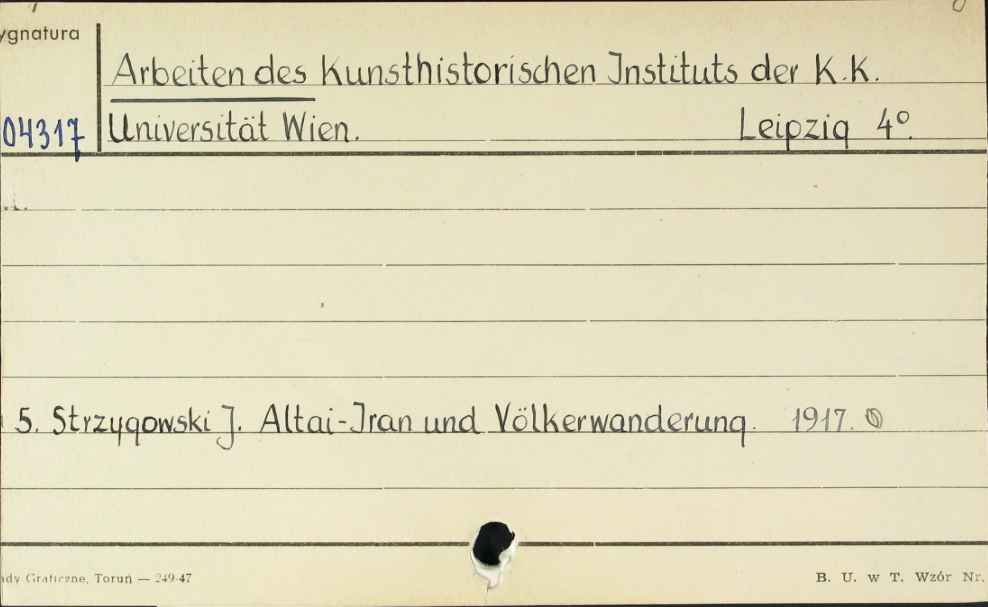 ygnatura
Arbeiten des Kunsthistorischen Instituts der K.K.
04317 Universität Wien. Leipzig 4°.
5. Strzygowski J. Altai-Iran und Völkerwanderung. 1917.
ady Graficzne, Toruń — 249-47 B. U. w T. Wzór Nr.